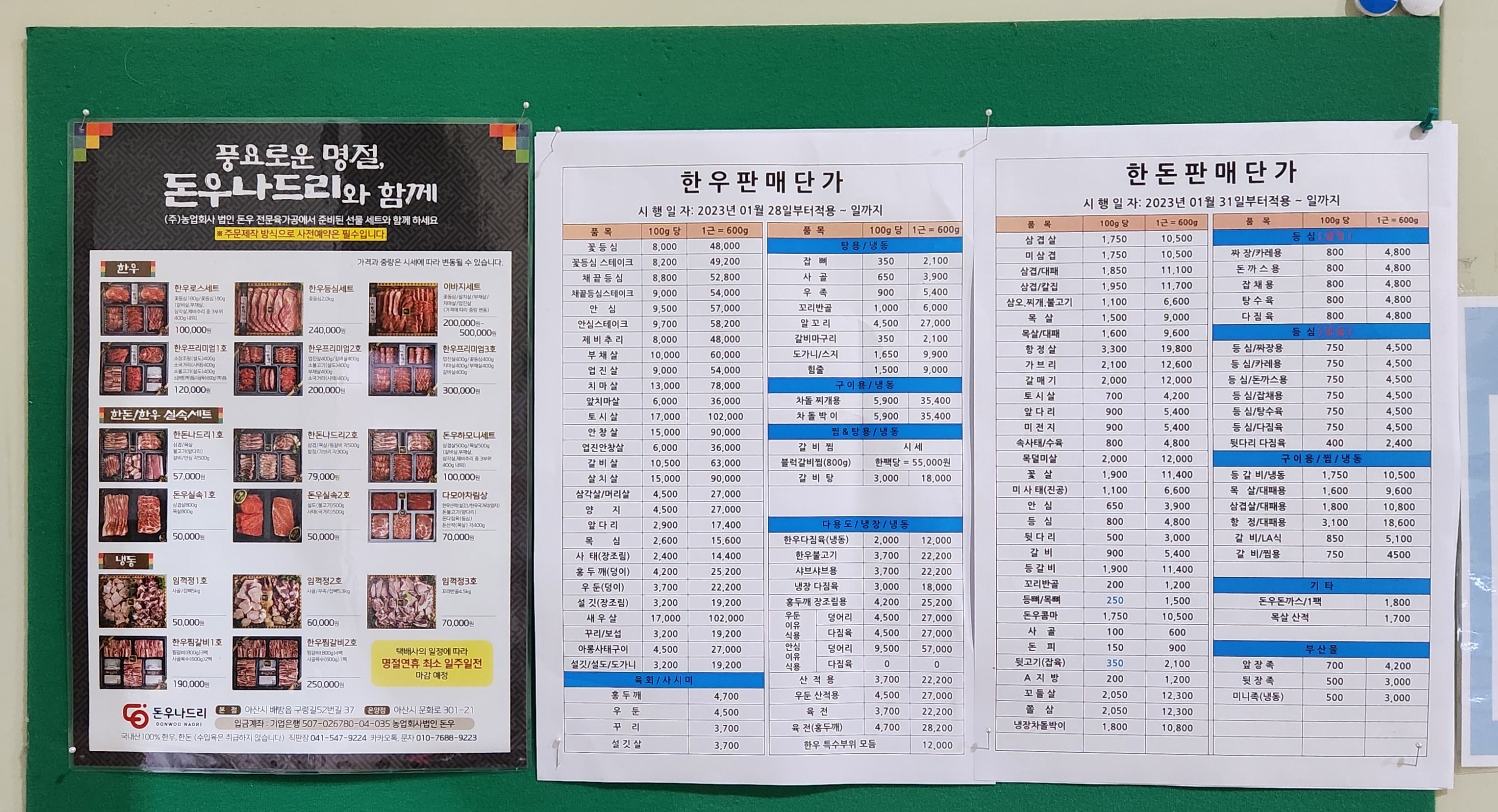 풍요로운 명절,
돈우나드리와 함께
(주)농업회사 법인 돈우 전문육가공에서 준비된 선물 세트와 함께 하세요
※ 주문제작 방식으로 사전예약은 필수입니다
가격과 중량은 시세에 따라 변동될 수 있습니다.
한우
한우로스세트
100,000원
한우등심세트
등심2.0kg
240,000원
아바지세트
200,000원~
500,000원
한우프리미엄1호
120,000원
한우프리미엄2호
200,000원
한우프리미엄3호
300,000원
한돈/한우 실속세트
한돈나드리1호
57,000원
한돈나드리2호
79,000원
돈우하모니세트
100,000원
돈우실속1호
삼겹살800g
목살800g
50,000원
돈우실속2호
50,000원
다모아차림상
70,000원
냉동
임꺽정1호
50,000원
임꺽정2호
60,000원
임꺽정3호
꼬리반골4.5kg
70,000원
한우찜갈비1호
190,000원
한우찜갈비2호
250,000원
택배사의 일정에 따라
명절연휴 최소 일주일전
마감 예정
돈우나드리
DONWOO NADRI
본 점 아산시 배방읍 구령길52번길 37 온양점 아산시 문화로 301-21
입금계좌 : 기업은행 507-026780-04-035 농업회사법인 돈우
국내산100% 한우, 한돈 (수입육은 취급하지 않습니다) 직판장 041-547-9224 카카오톡, 문자 010-7688-9223
한우판매단가
시 행 일 자: 2023년 01월 28일부터적용 ~ 일까지
품 목 100g 당 1근 = 600g
꽃 등 심 8,000 48,000
꽃등심 스테이크 8,200 49,200
채 끝 등 심 8,800 52,800
채끝등심스테이크 9,000 54,000
안 심 9,500 57,000
안심스테이크 9,700 58,200
제 비 추 리 8,000 48,000
부 채 살 10,000 60,000
업 진 살 9,000 54,000
치 마 살 13,000 78,000
앞치마살 6,000 36,000
토 시 살 17,000 102,000
안 창 살 15,000 90,000
업진안창살 6,000 36,000
갈 비 살 10,500 63,000
살 치 살 15,000 90,000
삼각살/머리살 4,500 27,000
양 지 4,500 27,000
앞 다 리 2,900 17,400
목 심 2,600 15,600
사 태(장조림) 2,400 14,400
홍 두 깨(덩이) 4,200 25,200
우 둔(덩이) 3,700 22,200
설 깃(장조림) 3,200 19,200
새 우 살 17,000 102,000
꾸리/보섭 3,200 19,200
아롱사태구이 4,500 27,000
설깃/설도/도가니 3,200 19,200
육 회 / 사 시 미
홍 두 깨 4,700
우 둔 4,500
꾸 리 3,700
설 깃 살 3,700
품 목 100g 당 1근 = 600g
탕 용 / 냉 동
잡 뼈 350 2,100
사 골 650 3,900
우 족 900 5,400
꼬리반골 1,000 6,000
알 꼬 리 4,500 27,000
갈비마구리 350 2,100
도가니/스지 1,650 9,900
힘줄 1,500 9,000
구 이 용 / 냉 동
차돌 찌개용 5,900 35,400
차 돌 박 이 5,900 35,400
찜 & 탕 용 / 냉 동
갈 비 찜 시 세
블럭갈비찜(800g) 한팩당 = 55,000원
갈 비 탕 3,000 18,000
다 용 도 / 냉 장 / 냉 동
한우다짐육(냉동) 2,000 12,000
한우불고기 3,700 22,200
샤브샤브용 3,700 22,200
냉장 다짐육 3,000 18,000
홍두깨 장조림용 4,200 25,200
우둔 이유 식용 덩어리 4,500 27,000
다짐육 4,500 27,000
안심 이유 식용 덩어리 9,500 57,000
다짐육 0 0
산 적 용 3,700 22,200
우둔 산적용 4,500 27,000
육 전 3,700 22,200
육 전(홍두깨) 4,700 28,200
한우 특수부위 모듬 12,000
한돈판매단가
시 행 일 자: 2023년 01월 31일부터적용 ~ 일까지
품 목 100g 당 1근 = 600g
삼 겹 살 1,750 10,500
미 삼 겹 1,750 10,500
삼겹/대패 1,850 11,100
삼겹/칼집 1,950 11,700
삼오.찌개.불고기 1,100 6,600
목 살 1,500 9,000
목살/대패 1,600 9,600
항 정 살 3,300 19,800
가 브 리 2,100 12,600
갈 매 기 2,000 12,000
토 시 살 700 4,200
앞 다 리 900 5,400
미 전 지 900 5,400
속사태/수육 800 4,800
목덜미살 2,000 12,000
꽃 살 1,900 11,400
미 사 태(진공) 1,100 6,600
안 심 650 3,900
등 심 800 4,800
뒷 다 리 500 3,000
갈 비 900 5,400
등 갈 비 1,900 11,400
꼬리반골 200 1,200
등뼈/목뼈 250 1,500
돈우콤마 1,750 10,500
사 골 100 600
돈 피 150 900
뒷고기(잡육) 350 2,100
A 지 방 200 1,200
꼬 들 살 2,050 12,300
쫄 살 2,050 12,300
냉장차돌박이 1,800 10,800
품 목 100g 당 1근 = 600g
등 심
짜 장/카레용 800 4,800
돈 까 스 용 800 4,800
잡 채 용 800 4,800
탕 수 육 800 4,800
다 짐 육 800 4,800
등 심
등 심/짜장용 750 4,500
등 심/카레용 750 4,500
등 심/돈까스용 750 4,500
등 심/잡채용 750 4,500
등 심/탕수육 750 4,500
등 심/다짐육 750 4,500
뒷다리 다짐육 400 2,400
구 이 용 / 찜 / 냉 동
등 갈 비/냉동 1,750 10,500
목 살/대패용 1,600 9,600
삼겹살/대패용 1,800 10,800
항 정/대패용 3,100 18,600
갈 비/LA식 850 5,100
갈 비/찜용 750 4500
기 타
돈우돈까스/1팩 1,800
목살 산적 1,700
부 산 물
앞 장 족 700 4,200
뒷 장 족 500 3,000
미니족(냉동) 500 3,000